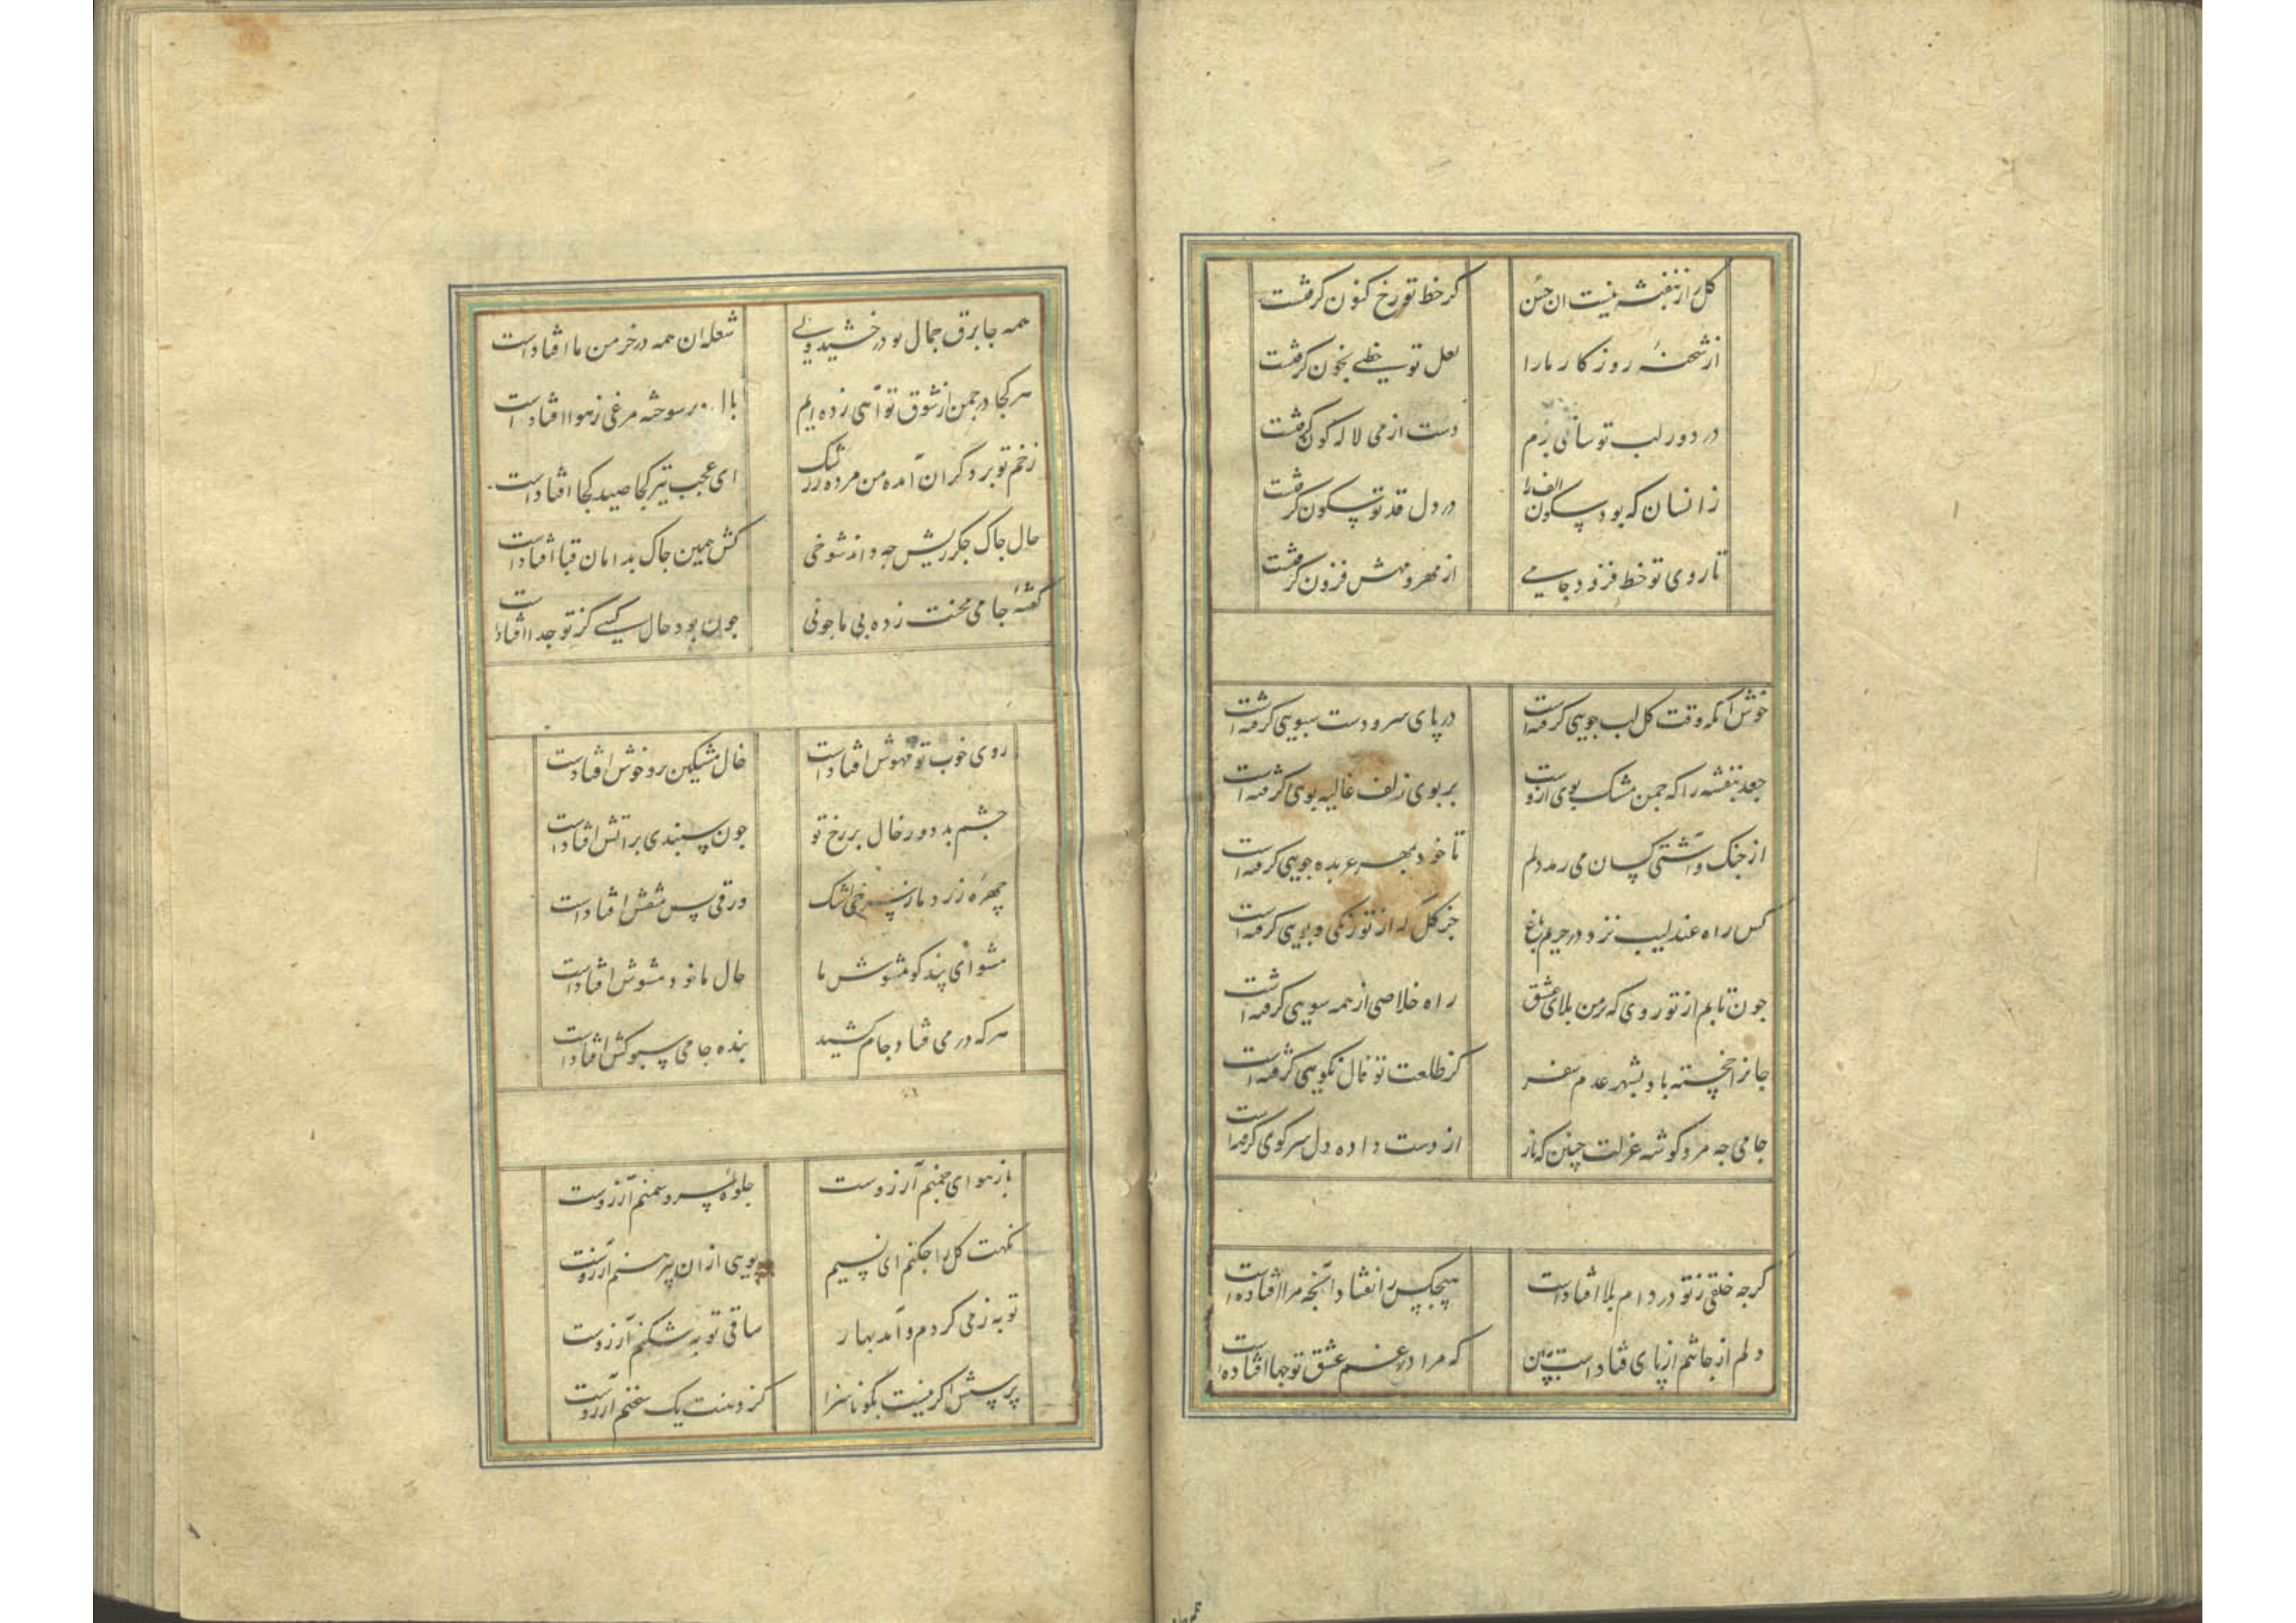 کل را ز بنفشه نیست ان حسن کر خط تو رخ کنون کرفتست
از شحنهٔ روزکار ما را لعل تو خطی بخون کرفتست
در دور لب تو ساقی بزم دست از می لاله کون کرفتست
زانسان که بود سکون الف را در دل قد تو سکون کرفتست
تا روی تو خط فزود جامی از مهر و مهش فزون کرفتست
خوش آنکه وقت کل لب جویی کرفته است در پای سرو دست سبویی کرفته است
جعد بنفشه را که چمن مشک بوی ازوست بر بوی زلف غالیه بویی کرفته است
از جنک و آشتی کسان می رمد دلم تا خو د بهر عربده جویی کرفته است
کس راه عندلیب نزد در حریم باغ جز کل که از تو رنکی و بویی کرفته است
جون تابم از تو روی که بر من بلای عشق راه خلاصی از همه سویی کرفته است
جانرا خجسته باد بشهر عدم سفر کز طلعت تو فال نکویی کرفته است
جامی جه مرد کوشه عزلت چنین که باز از دست داده دل سر کوی کرفته است
کرجه خلقی ز تو در دام بلا افتادست هیچکس را نفتاد آنجه مرا افتاده است
دلم از جا تنم از پای فتاداست ببین که مرا در غم عشق تو جها افتاده است
همه جا برق جمال تو درخشید ولی شعله ان همه در خرمن ما افتاد است
هر کجا در جمن از شوق تو آهی زده ایم بال پر سوخته مرغی ز هوا افتاد است
زخم تو بر دکران آمده من مرده ز رشک ای عجب تیر کجا صید کجا افتاد است
حال جاک جکر ریش جه داند شوخی کش همین جاک بدامان قبا افتاد است
کفتهٔ جامی محنت زده بی ما جونی جون بود حال کسی کز تو جدا افتاد است
روی خوب تو مهوش افتاد است خال مشکین برو خوش افتاد است
جشم بد دور خال بر رخ تو جون سپندی بر اتش افتاد است
چهره زرد ما ز سرخی اشک ورقی بس منقش افتاد است
مشو ای پند کو مشوش ما حال ما خود مشوش افتاد است
هر که در می فتاد جام کشید بنده جامی سبوکش افتاد است
باز هوای جمنم آرزوست جلوهٔ سرو و سمنم آرزوست
نکهت کل را جکنم ای نسیم بویی از ان پیرهنم آرزوست
توبه ز می کردم و آمد بهار ساقی توبه شکنم آرزوست
پرسش اکر نیست بکو ناسزا کز دهنت یک سخنم آرزوست